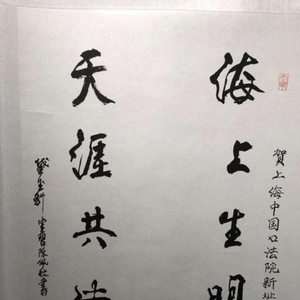 賀上海中国口法院新址
海上生明
天涯共
陳佩秋書